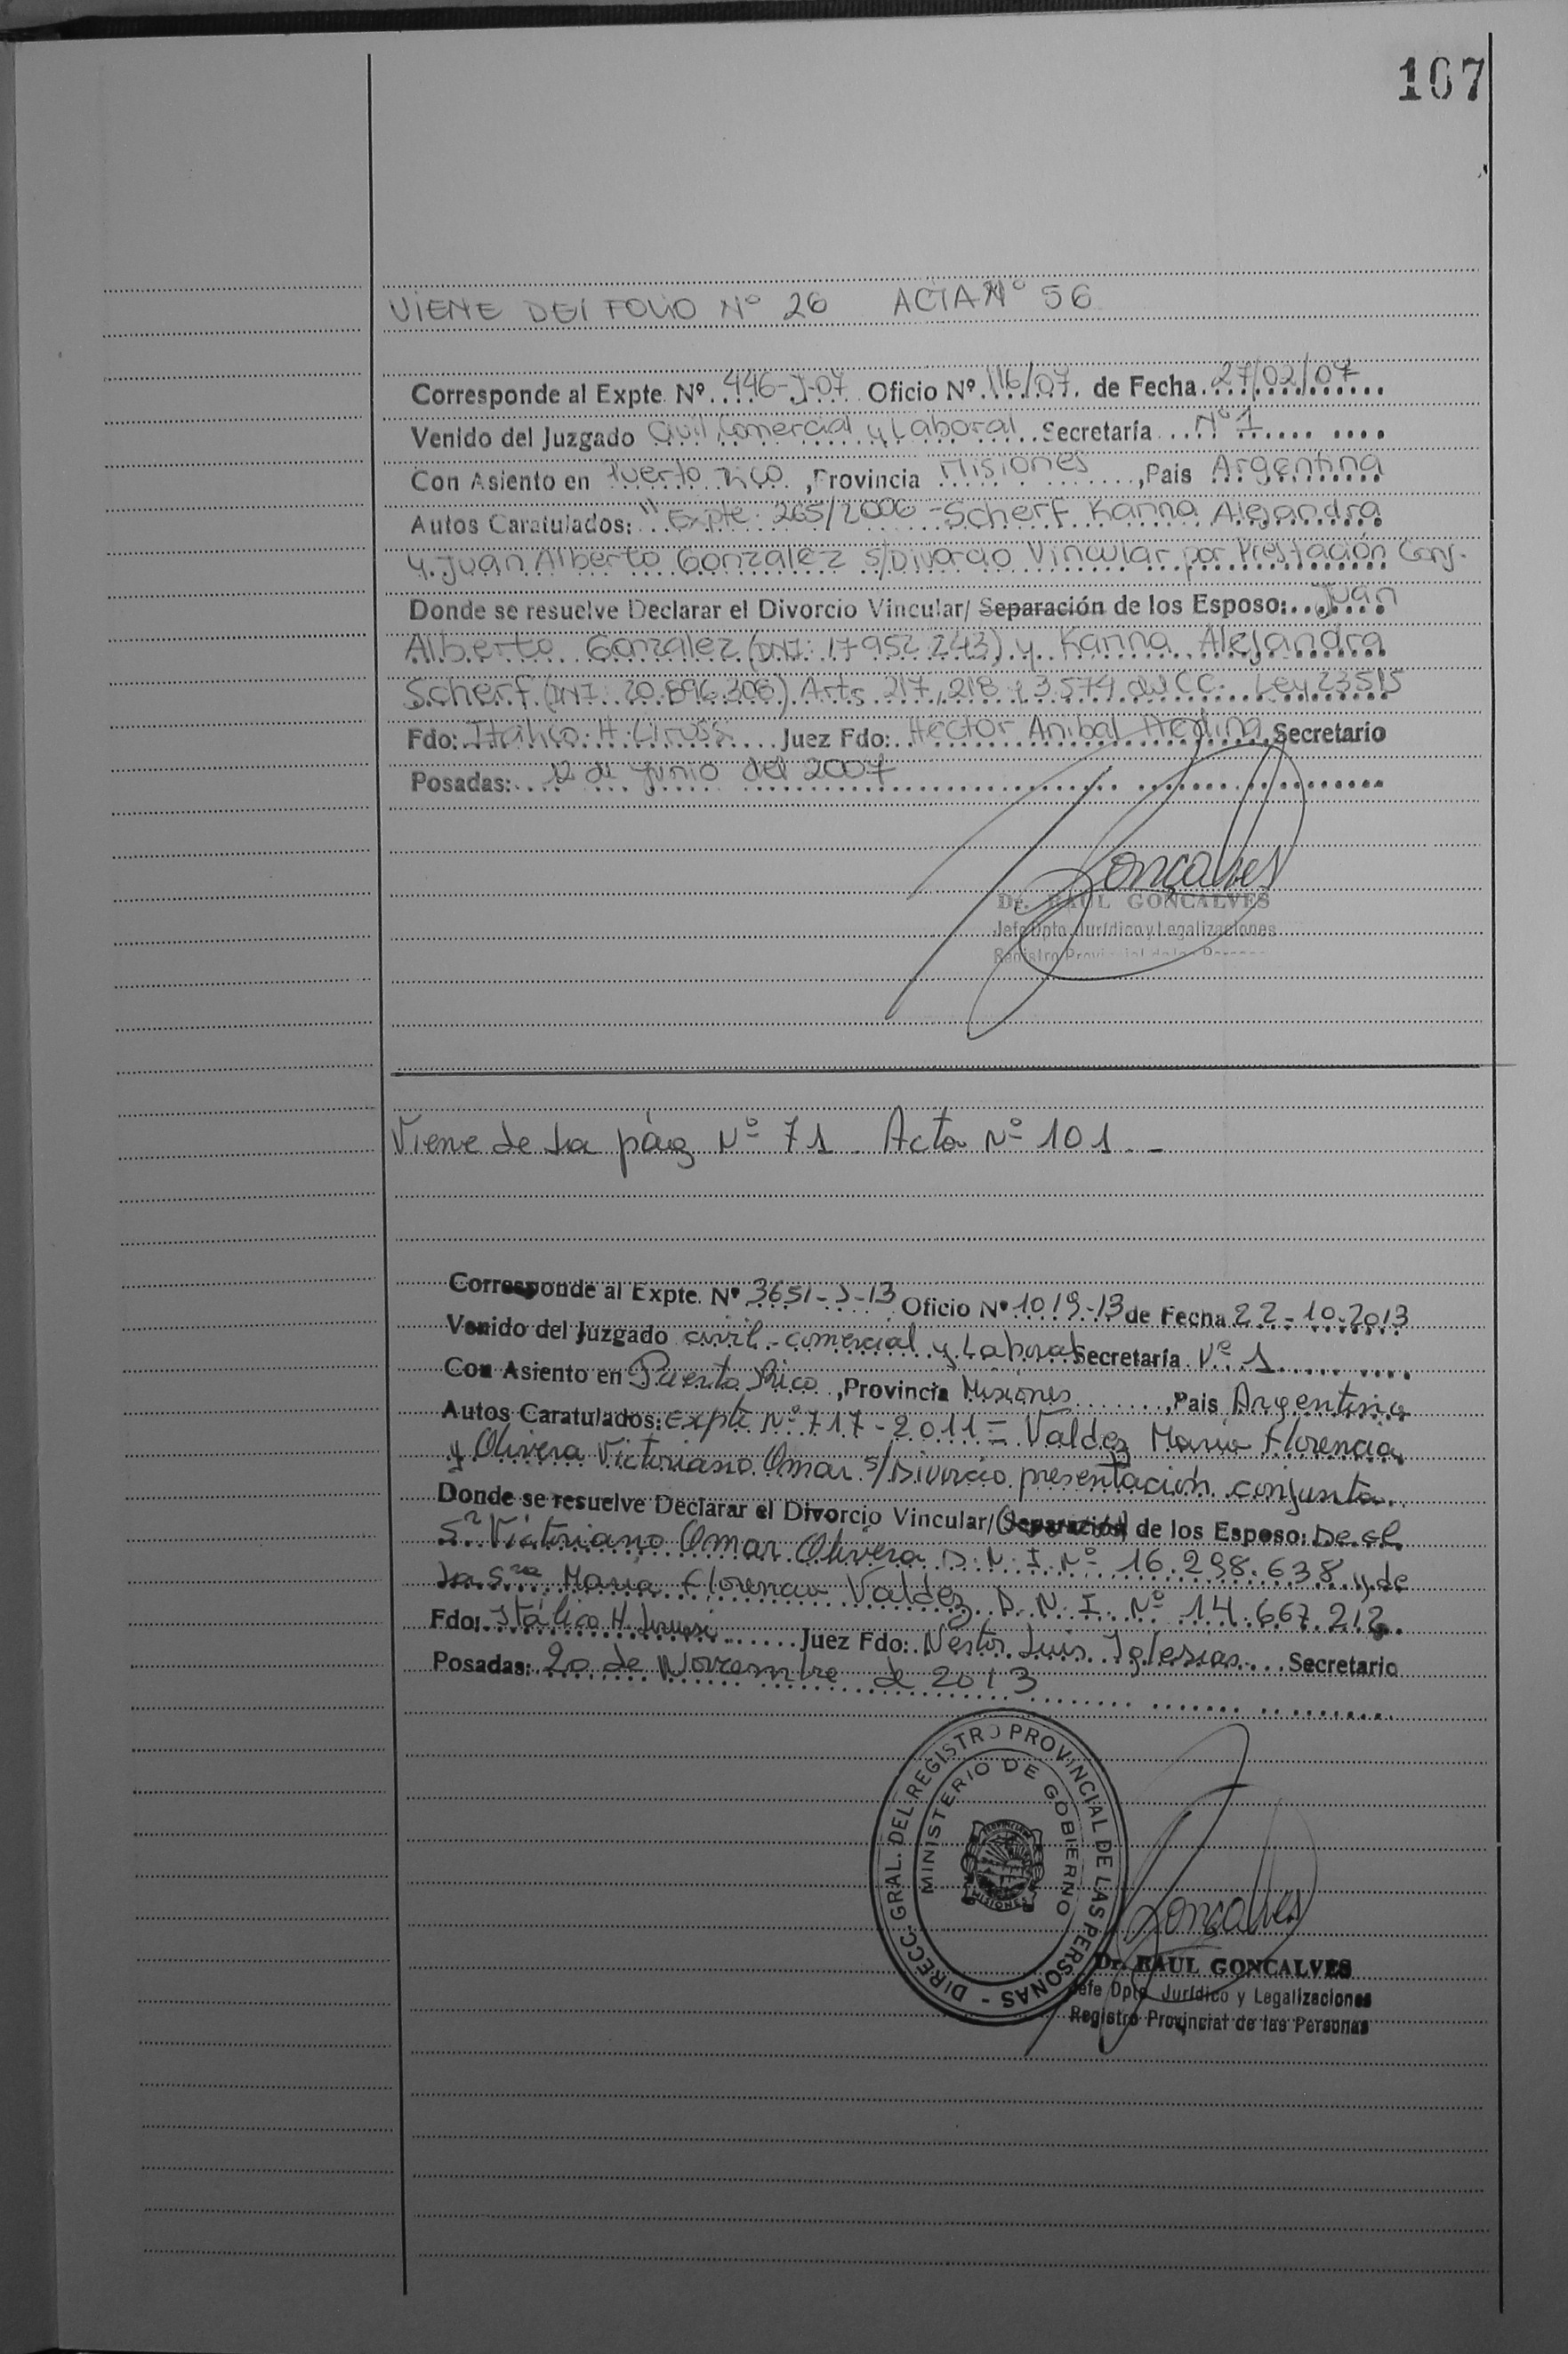 107
VIENE DEL FOLIO Nº 26 ACTA Nº 56
Corresponde al Expte. Nº 446-J-07 Oficio Nº 116/07 de Fecha 27/02/07
Venido del Juzgado Civil Comercial y Laboral Secretaría Nº 1
Con Asiento en Puerto Rico, Provincia Misiones, Pais Argentina
Autos Caratulados: "Expte 265/2006 - Scherf Karina Alejandra
y Juan Alberto Gonzalez s/Divorcio Vincular por Prestación Conj.
Donde se resuelve Declarar el Divorcio Vincular/ Separación de los Esposo: Juan
Alberto Gonzalez (DNI: 17 952 243) y Karina Alejandra
Scherf (DNI: 20.896.308) Arts 217, 218 y 3.574 del CC. Ley 23515
Fdo: Italico H. Juez Fdo: Hector Anibal Medina Secretario
Posadas: 12 de junio del 2007
Goncalves
Dr. RAUL GONCALVES
Jefe Dpto. Jurídico y Legalizaciones
Registro Provincial de las Personas
Viene de la pág Nº 71. Acta Nº 101.-
Corresponde al Expte. Nº 3651-J-13 Oficio Nº 1019-13 de Fecha 22-10-2013
Venido del Juzgado civil-comercial y Laboral Secretaría Nº 1
Con Asiento en Puerto Rico, Provincia Misiones, Pais Argentina
Autos Caratulados: Expte Nº 717-2011 = Valdez Maria Florencia
y Olivera Victoriano Omar s/Divorcio presentación conjunta.
Donde se resuelve Declarar el Divorcio Vincular/(Separación) de los Esposo: De el
Sr Victoriano Omar Olivera D.N.I. Nº 16.298.638 y de
la Sra Maria Florencia Valdez D.N.I. Nº 14.667.212.
Fdo: Itálico H. Juez Fdo: Nestor Luis Iglesias Secretario
Posadas: 20 de Noviembre de 2013
DIRECC. GRAL. DEL REGISTRO PROVINCIAL DE LAS PERSONAS -
MINISTERIO DE GOBIERNO
PROVINCIA
MISIONES
Goncalves
Dr. RAUL GONCALVES
Jefe Dpto. Jurídico y Legalizaciones
Registro Provincial de las Personas